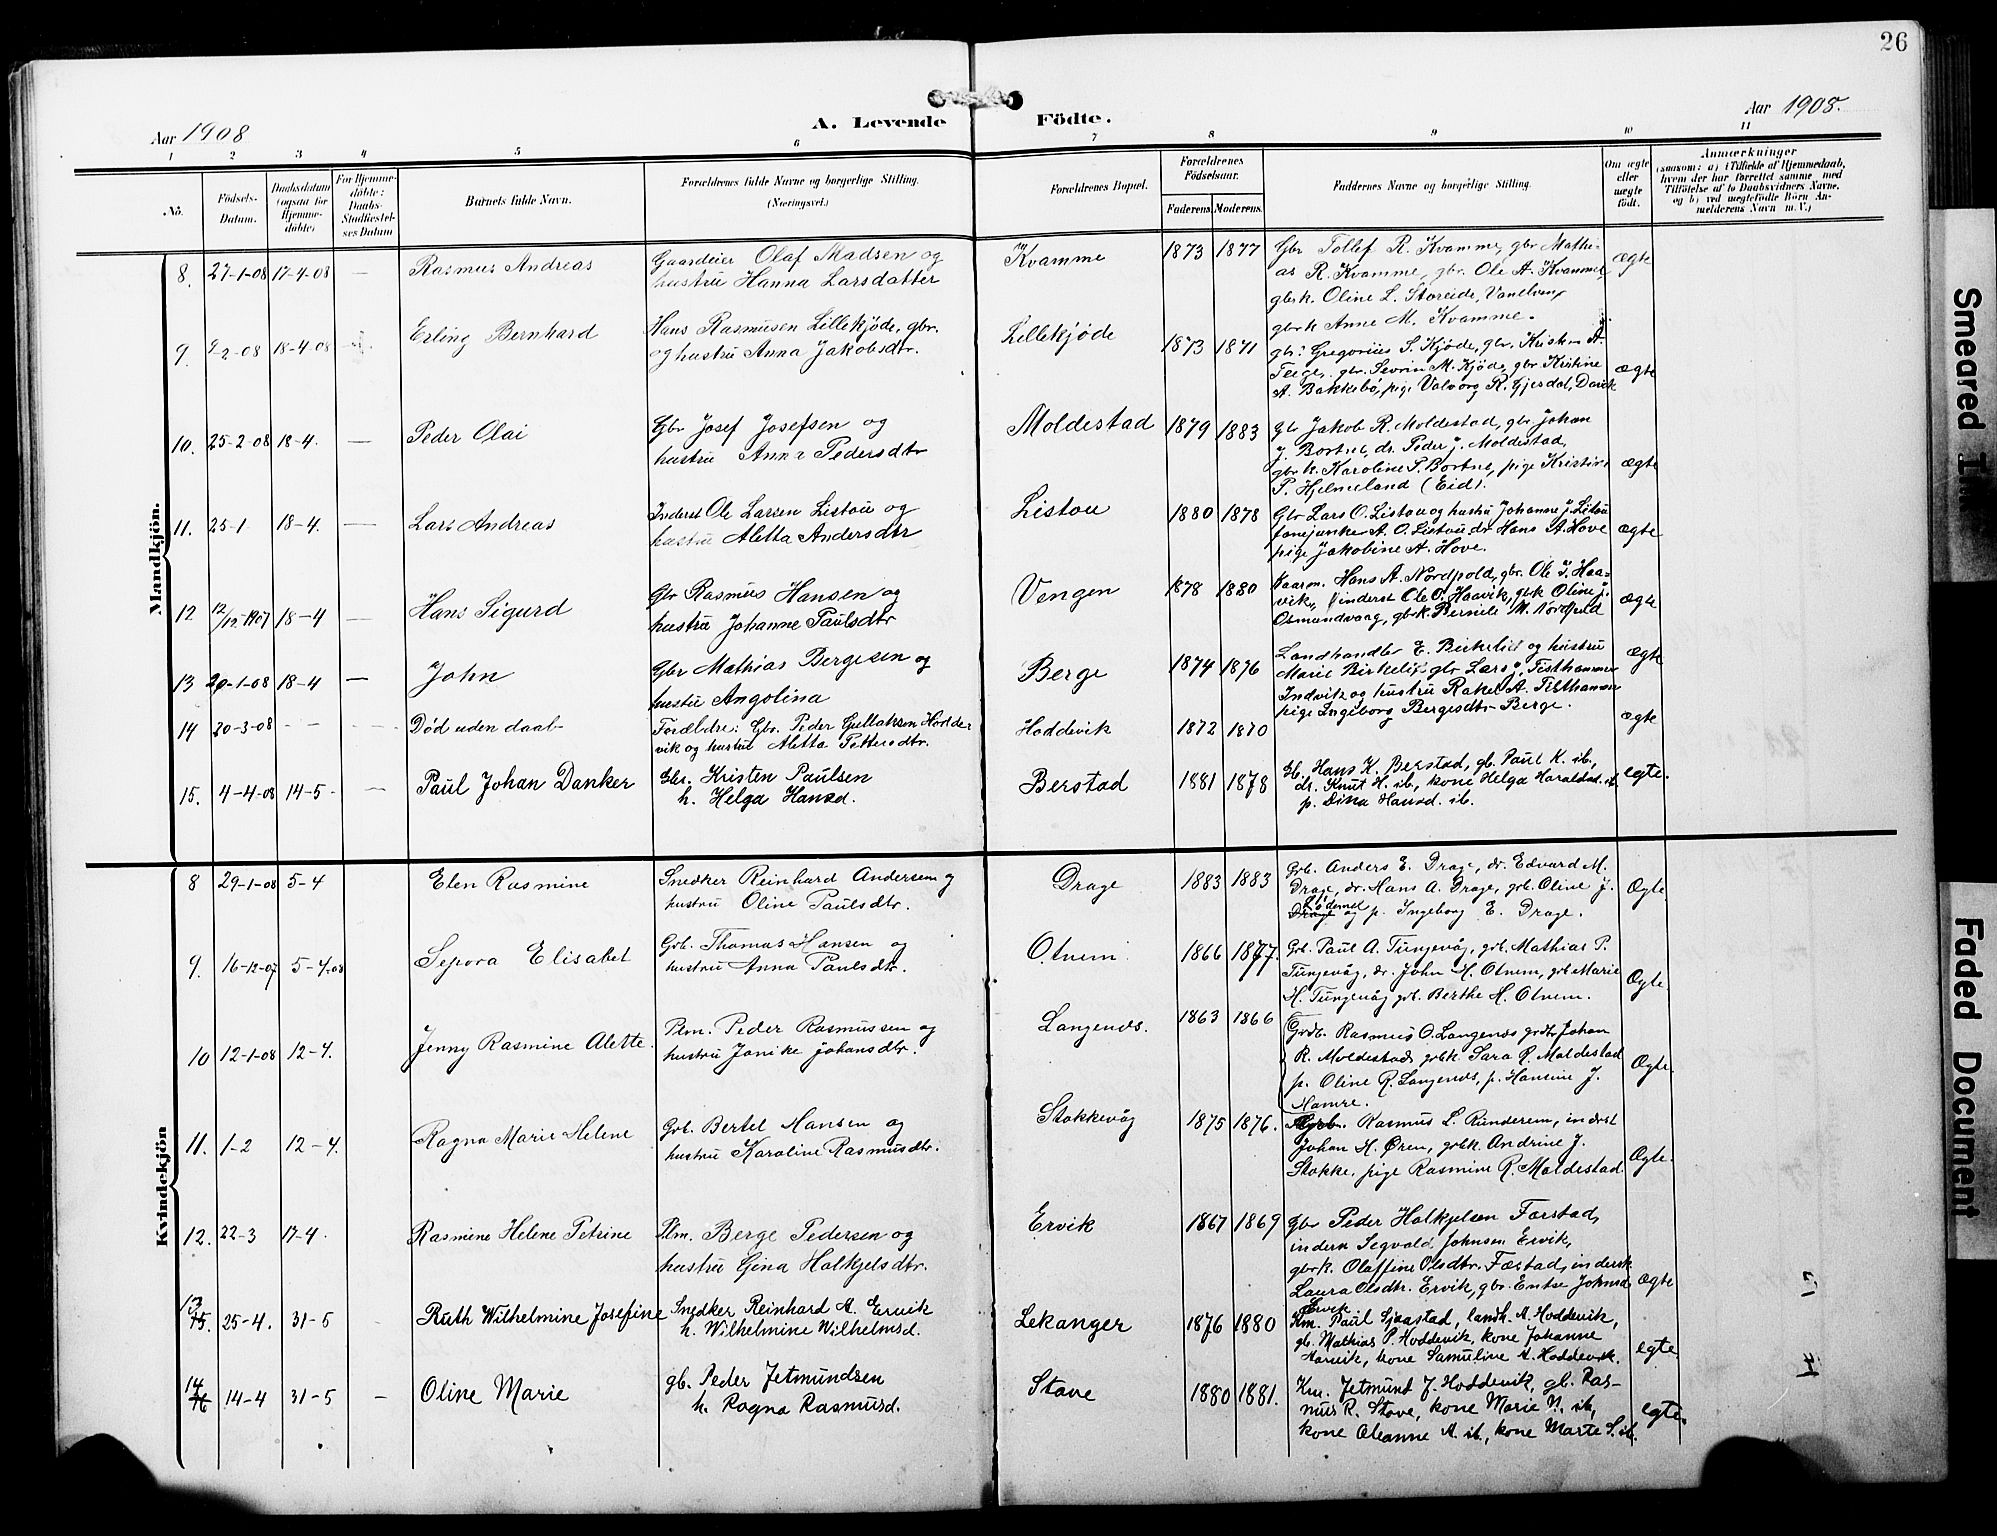 26
Aar 1908
A. Levende Födte.
Aar 1908.
1 2 3 4 5 6 7 8 9 10 11
No.
Födsels-Datum.
Daabsdatum (ogsaa for Hjemmedöbte)
For Hjemmedöbte: Daabs-Stadfæstelses Datum
Barnets fulde Navn.
Forældrenes fulde Navne og borgerlige Stilling.
(Næringsvei.)
Forældrenes Bopæl.
Forældrenes Födselsaar.
Faderens Moderens.
Faddernes Navne og borgerlige Stilling.
Om ægte eller uægte födt.
Anmærkninger
(saasom: a) i Tilfælde af Hjemmedaab, hvem der har forrettet samme, med Tilföielse af to Daabsvidners Navne, og b) ved uægtefödte Börn Anmelderens Navn m. V.)
Mandkjön.
8. 27-1-08 17-4-08 — Rasmus Andreas
Gaardeier Olaf Madsen og
hustru Hanna Larsdatter
Kvamme 1873 1877
Gbr Tollef R. Kvamme, gbr Mathi-
as R. Kvamme, gbr. Ole A. Kvamme,
gbrk. Oline L. Storeide, Vanelven,
gbrk Anne M. Kvamme.
ægte
9. 9-2-08 18-4-08 Erling Bernhard
Hans Rasmusen Lillekjøde, gbr.
og hustru Anna Jakobsdtr.
Lillekjøde 1873 1871
gbr. Gregorius S. Kjøde, gbr. Kristen A.
Teige, gbr. Sevrin M. Kjøde, gbr Kristine
A. Bakkebø, pige Valborg R. Gjesdal, Davik
ægte
10. 25-2-08 18-4. — Peder Olai
Gbr Josef Josefsen og
hustru Anna Pedersdtr
Moldestad 1879 1883
Gbr Jakob R. Moldestad, gbr Johan
J. Bortne, dr. Peder J. Moldestad,
gbr k. Karoline P. Bortne, pige Kristine
P. Hjelmeland (Eid).
ægte
11. 25-1 18-4. — Lars Andreas
Inderst Ole Larsen Listou og
hustru Aletta Andersdtr
Listou 1880 1878
Gbr Lars O. Listou og hustru Johanne J. Listou
fanejunker A. O. Listou dr. Hans A. Hove
pige Jakobine A. Hove.
ægte
12 12/12-1907 18-4 — Hans Sigurd
Gbr Rasmus Hansen og
hustru Johanne Paulsdtr
Vengen 1878 1880
Kaarm. Hans A. Nordpold, gbr. Ole J. Haa-
vik, inderst Ole O. Haavik, gbk Oline J.
Osmundvaag, gbrk. Bernele M. Nordpold
ægte
13 20-1-08 18-4 — John
Gbr Mathias Bergesen og
hustru Angolina
Berge 1874 1876
Landhandler E. Birkelid og hustru
Marie Birkelid, gbr Lars J. Tisthammer
Indvik og hustru Rakel A. Tisthammer
pige Ingeborg Bergesdtr Berge.
ægte
14 30-3-08 - - Död uden daab
Forældre: Gbr. Peder Gullaksen Hodde-
vik og hustru Aletta Pettersdtr.
Hoddevik 1872 1870
ægte
15. 4-4-08 14-5- — Paul Johan Danker
Gbr. Kristen Paulsen
h. Helga Hansd.
Berstad 1881 1878
Gb. Hans K. Berstad, gb. Paul K. ib,
dr. Knut H. ib, kone Helga Haraldsd. ib.
p. Dina Hansd. ib.
egte.
Kvindekjön
8 29-1-08 5-4 Elen Rasmine
Snedker Reinhard Andersen og
hustru Oline Paulsdtr.
Drage 1883 1883
Grb. Anders E. Drage, dr. Edvard M.
Drage, dr. Hans A. Drage, grb. Oline J.
Drage og p. Ingeborg E. Drage.
Ægte
9. 16-12-07 5-4-08 Sepora Elisabet
Grb. Thomas Hansen og
hustru Anna Paulsdtr.
Otnem 1866 1877.
Grb. Paul A. Tungevåg, grb. Mathias P.
Tungevåg, dr. John H. Otnem, grb. Marie
H. Tungevåg grb. Berthe H. Otnem.
Ægte.
10 12-1-08 12-4. Jenny Rasmine Alette.
Plm. Peder Rasmussen og
hustru Janike Johansdtr.
Langenes. 1863 1866
Grdb. Rasmus O. Langenes grdb. Johan
R. Moldestad, grbk. Sara R. Moldestad
p. Oline R. Langenes, p. Hansine J.
Hamre.
Ægte.
11. 1-2 12-4. Ragna Marie Helene
Grb. Bertel Hansen og
hustru Karoline Rasmusdtr.
Stokkevåg 1875 1876.
Grb. Rasmus L. Runderem, inderst
Johan H. Øren, grbk. Andrine J.
Stokke, pige Rasmine R. Moldestad
Ægte.
12. 22-3 17-4. Rasmine Helene Petrine
Plm. Berge Pedersen og
hustru Gina Halkjelsdtr.
Ervik 1867 1869
Gbr Peder Halkjelsen Færstad,
inders Segvald Johnsen Ervik,
gbrk. Olaffine Olsdtr. Færstad, indersk
Laura Olsdtr. Ervik, gbr. Entse Johnsd
Ervik
ægte
13 15. 25-4. 31-5 Ruth Wilhelmine Josefine
Snedker Reinhard A. Ervik
h. Wilhelmine Wilhelmsd.
Lekanger 1876 1880
Km. Paul Sjaastad, landh. A. Hoddevik,
gb. Mathias P. Hoddevik, kone Johanne
Harvik, kone Samuline A. Hoddevik.
egte.
14 16 14-4 31-5 - Oline Marie
gb. Peder Jetmundsen
h. Ragna Rasmusd.
Stave 1880 1881.
Km. Jetmund J. Hoddevik, gb. Ras-
mus R. Stave, kone Marie N. ib,
kone Oleanne A. ib., kone Marte S. ib.
egte.
Smeared Ink
Faded Document